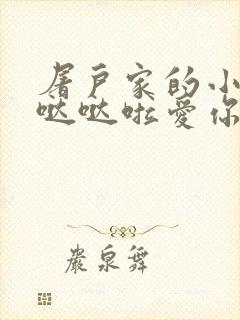 屠户家的小
哒哒啦爱你
巖泉舞